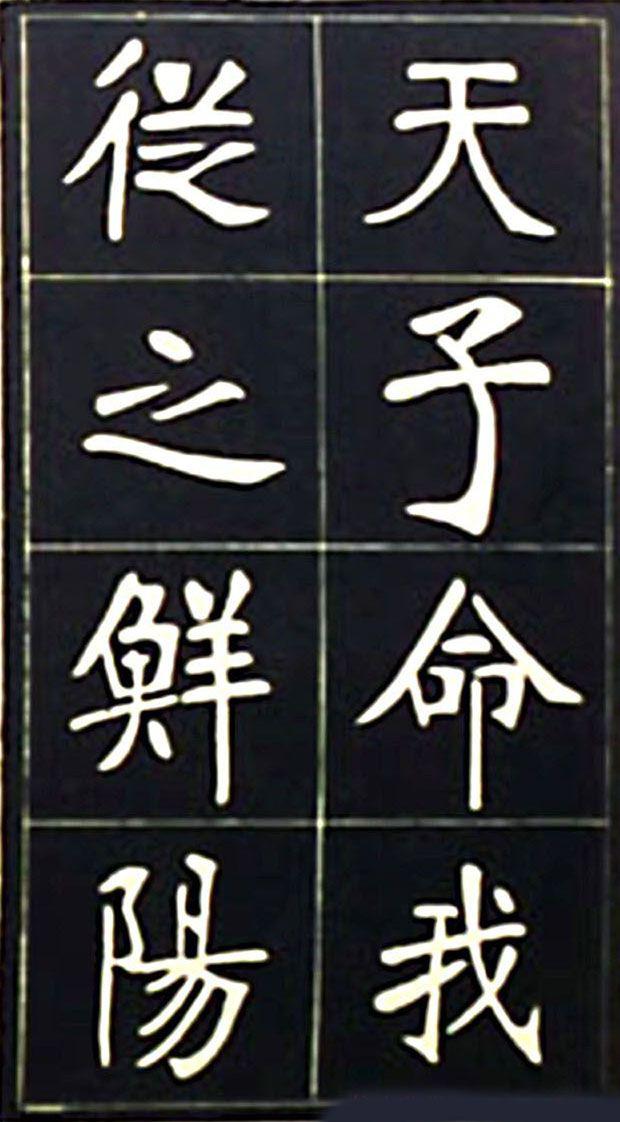 天子命我
從之鮮陽